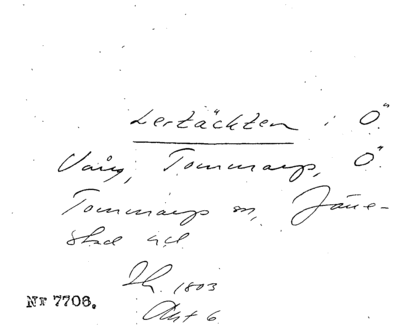 Lertäckten i Ö.
Vång, Tommarp, Ö.
Tommarps sn, Järre-
stad hd
Jh. 1803
Akt 6
Nr 7706.